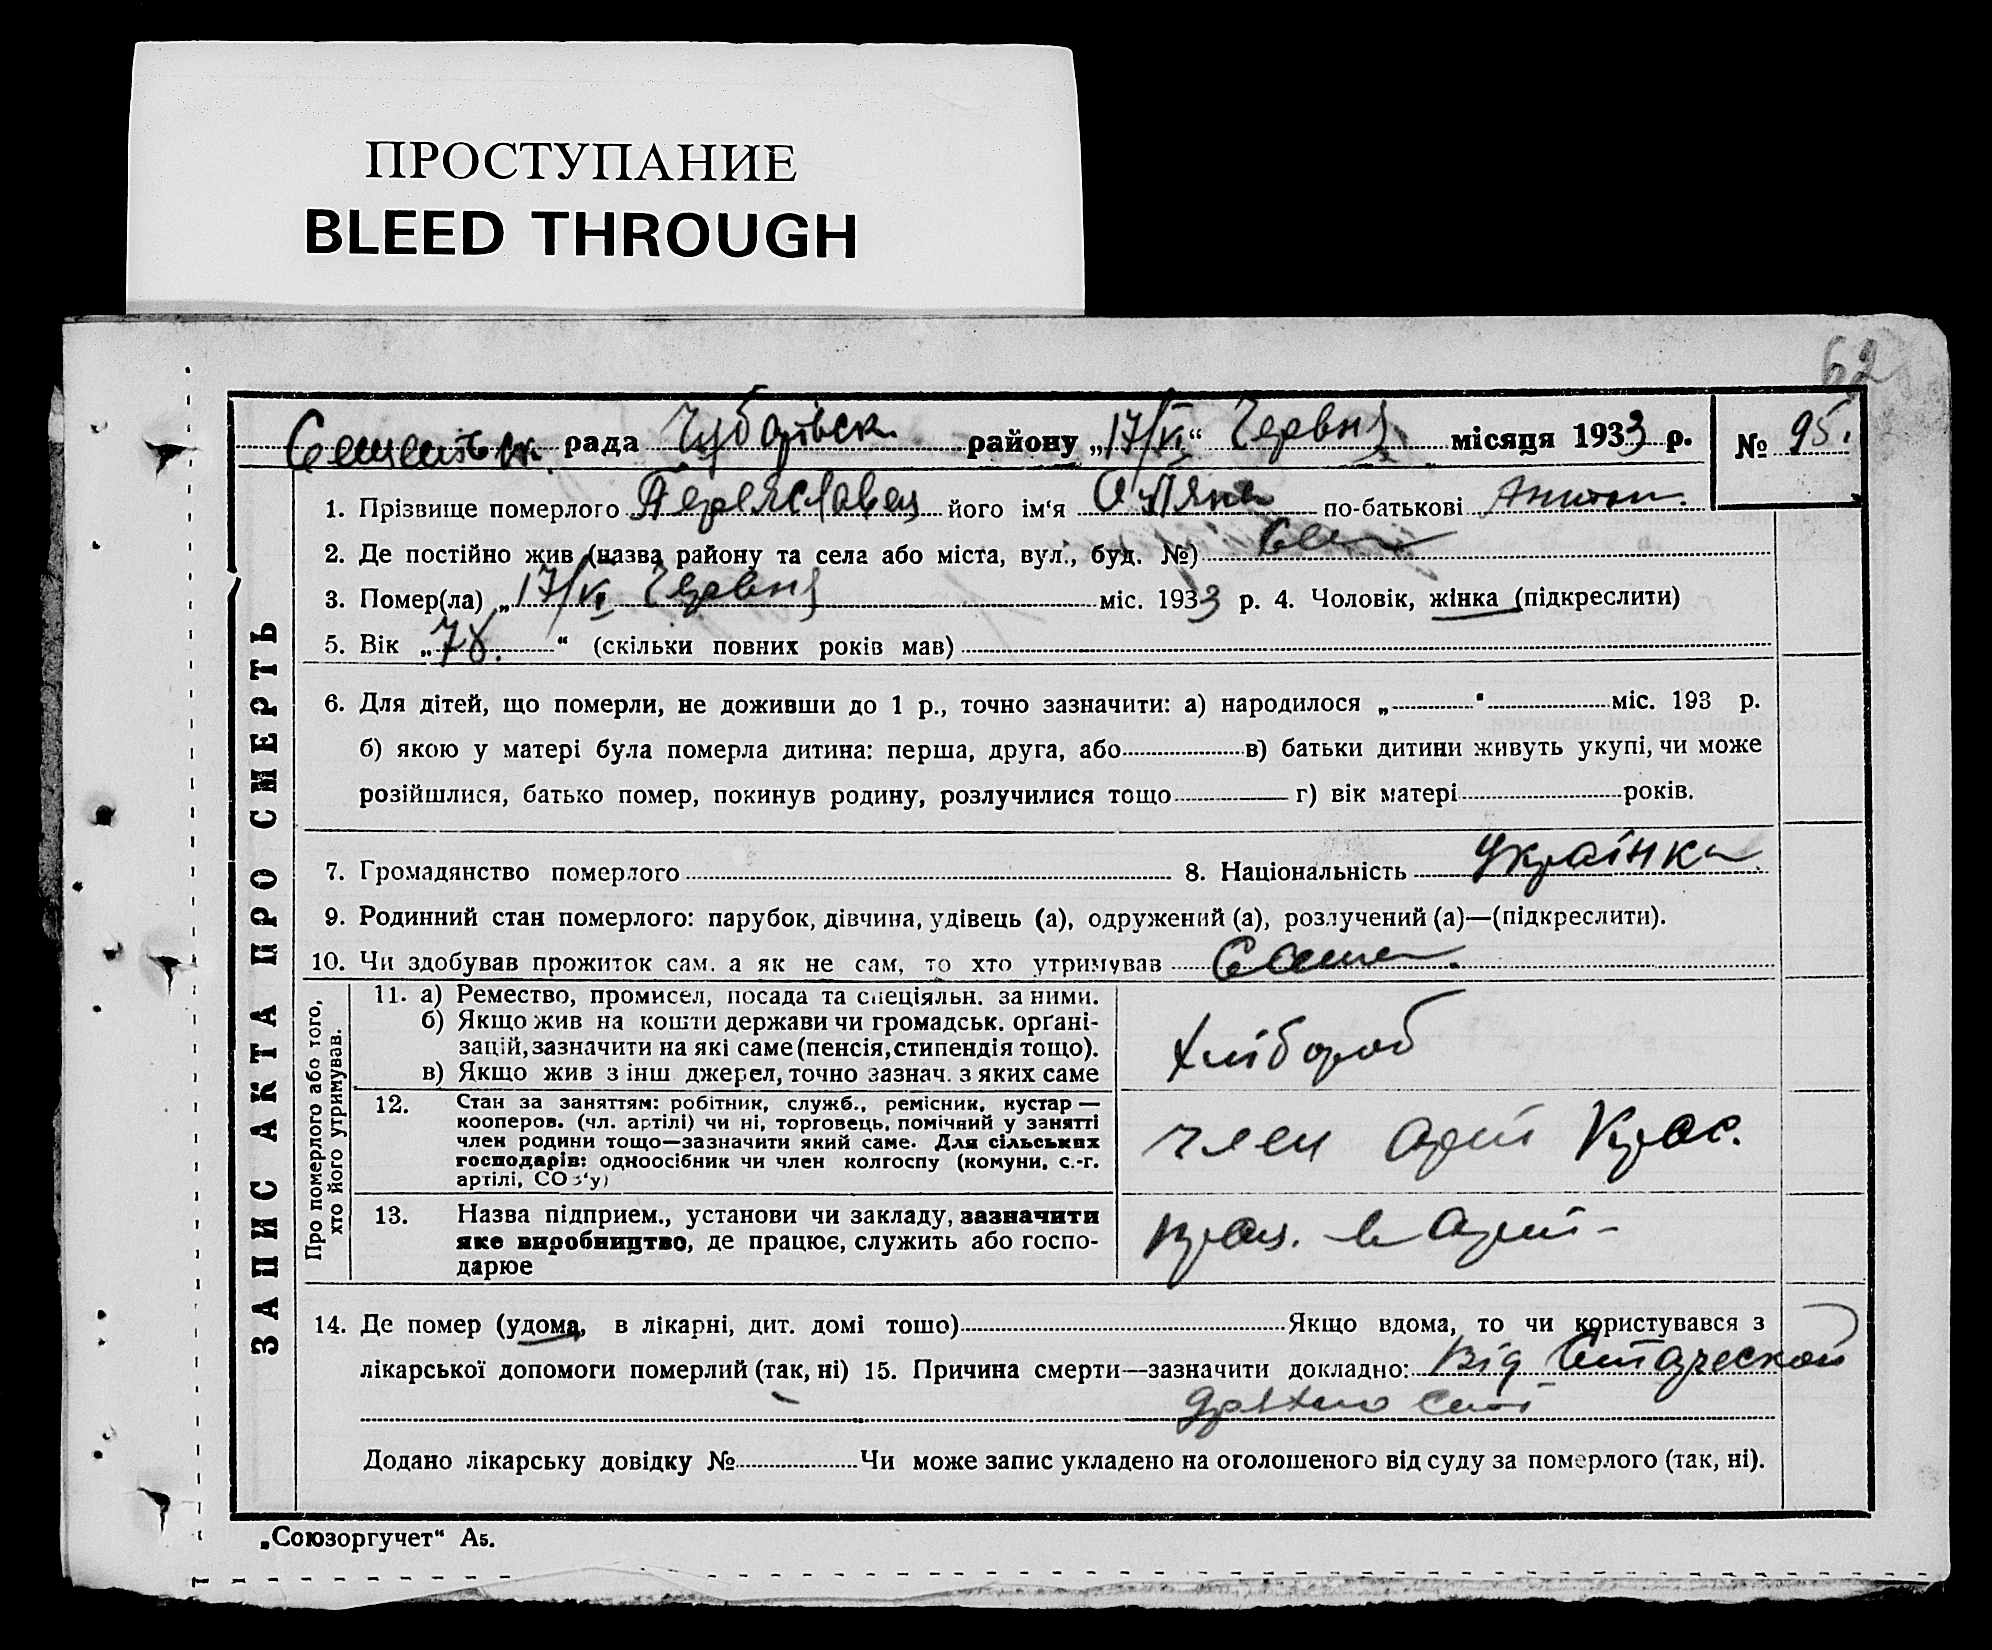 ПРОСТУПАНИЕ
BLEED THROUGH
62
рада Чубарівск. району „17/VI“ Червня місяця 1933 р. № 95.
1. Прізвище померлого Переяславец його ім‘я Уляна по-батькові Антон.
2. Де постійно жив (назва району та села або міста, вул., буд. №)
3. Помер(ла) „17/VI Червня міс. 1933 р. 4. Чоловік, жінка (підкреслити)
5. Вік „78.“ (скільки повних років мав)
6. Для дітей, що померли, не доживши до 1 р., точно зазначити: а) народилося „ “ міс. 193 р.
б) якою у матері була померла дитина: перша, друга, або в) батьки дитини живуть укупі, чи може
розійшлися, батько помер, покинув родину, розлучилися тощо г) вік матері років.
7. Громадянство померлого 8. Національність Українка
9. Родинний стан померлого: парубок, дівчина, удівець (а), одружений (а), розлучений (а)—(підкреслити).
10. Чи здобував прожиток сам. а як не сам, то хто утримував Сама.
ЗАПИС АКТА ПРО СМЕРТЬ
Про померлого або того,
хто його утримував.
11. а) Ремество, промисел, посада та спеціяльн. за ними.
б) Якщо жив на кошти держави чи громадськ. орґані-
зацій, зазначити на які саме (пенсія, стипендія тощо).
в) Якщо жив з інш джерел, точно зазнач. з яких саме
Хлібороб
12. Стан за заняттям: робітник, служб., ремісник, кустар —
кооперов. (чл. артілі) чи ні, торговець, помічний у занятті
член родини тощо—зазначити який саме. Для сільських
господарів: одноосібник чи член колгоспу (комуни, с.-г.
артілі, СОЗ‘у)
член арті Крас.
13. Назва підприєм., установи чи закладу, зазначити
яке виробництво, де працює, служить або госпо-
дарює
прац. в арті-
14. Де помер (удома, в лікарні, дит. домі тощо) Якщо вдома, то чи користувався з
лікарської допомоги померлий (так, ні) 15. Причина смерти—зазначити докладно: Від Старческой
дряхлости
Додано лікарську довідку № Чи може запис укладено на оголошеного від суду за померлого (так, ні).
„Союзоргучет“ А5.